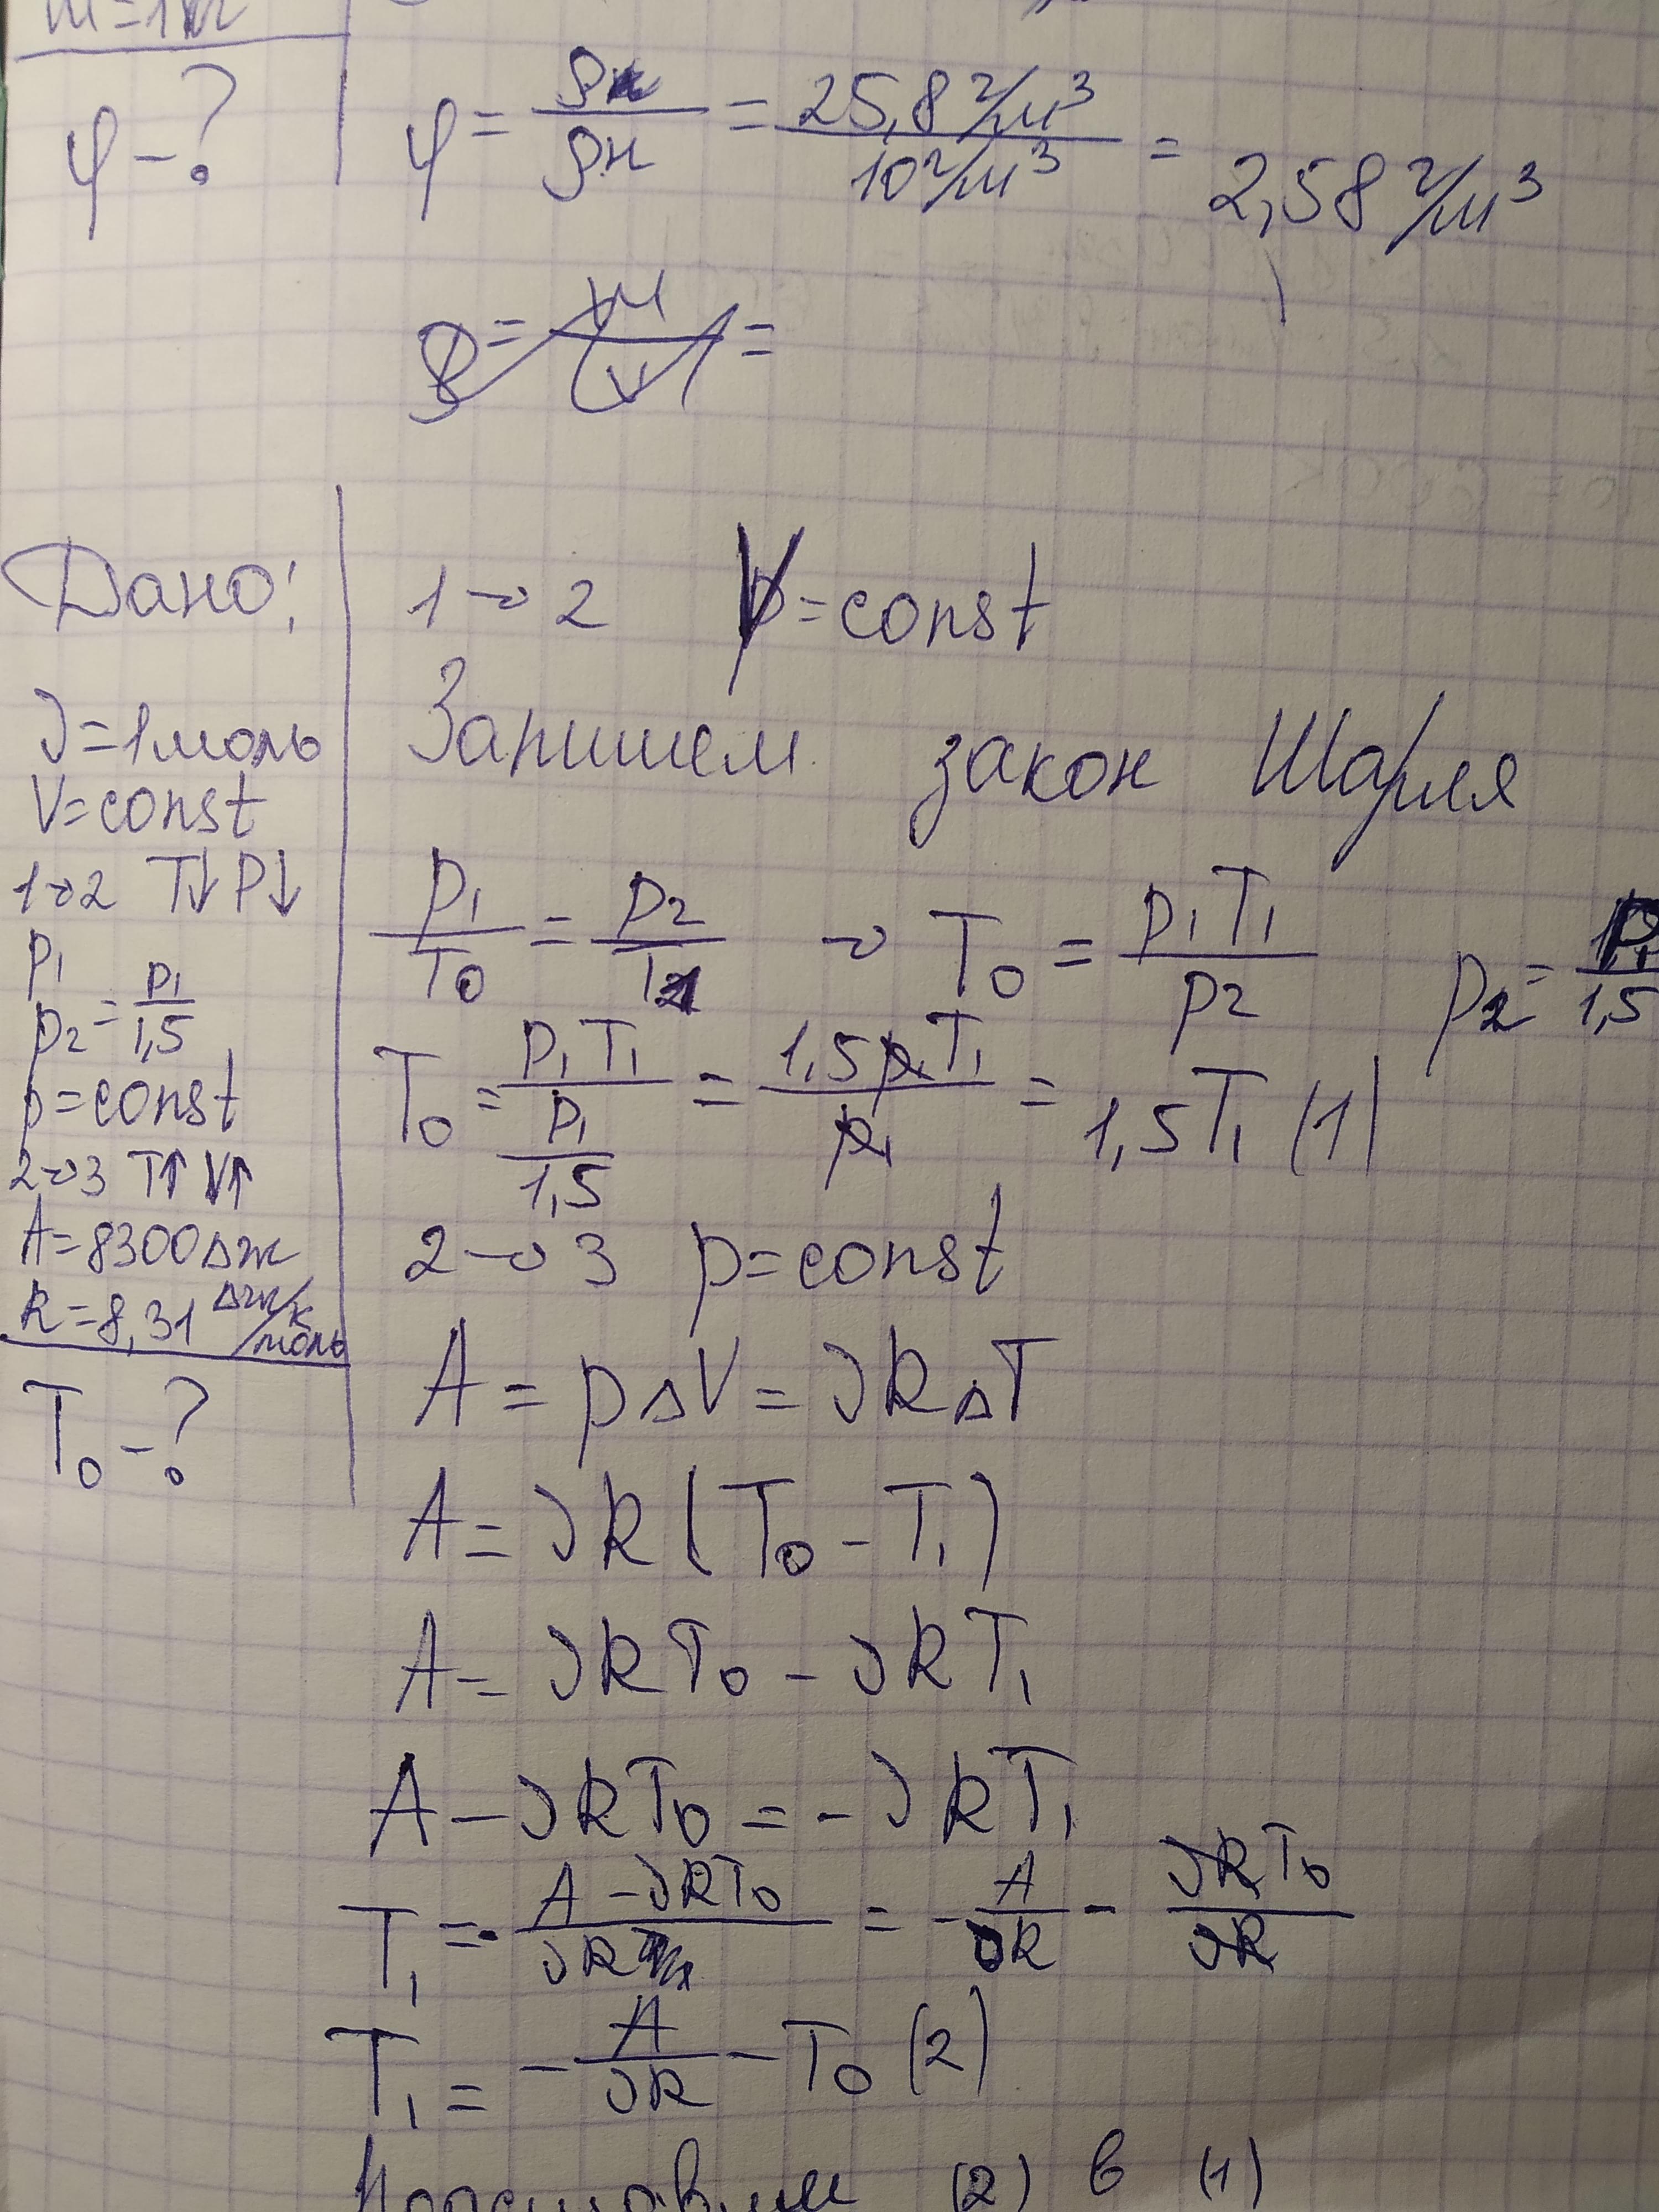 φ - ?
φ = ρ / ρн = 25,8 г/м³ / 10 г/м³ = 2,58 г/м³
Дано:
ν = 1 моль
V = const
1→2 T↓ P↓
p₁
p₂ = p₁ / 1,5
p = const
2→3 T↑ V↑
A = 8300 Дж
R = 8,31 Дж/К / моль
T₀ - ?
1→2 V = const
Запишем закон Шарля
p₁ / T₀ = p₂ / T₁ → T₀ = p₁T₁ / p₂ p₂ = p₁ / 1,5
T₀ = p₁T₁ / (p₁ / 1,5) = 1,5p₁T₁ / p₁ = 1,5T₁ (1)
2→3 p = const
A = pΔV = νRΔT
A = νR(T₀ - T₁)
A = νRT₀ - νRT₁
A - νRT₀ = -νRT₁
T₁ = - (A - νRT₀) / νR = - A / νR - νRT₀ / νR
T₁ = - A / νR - T₀ (2)
(2) в (1)